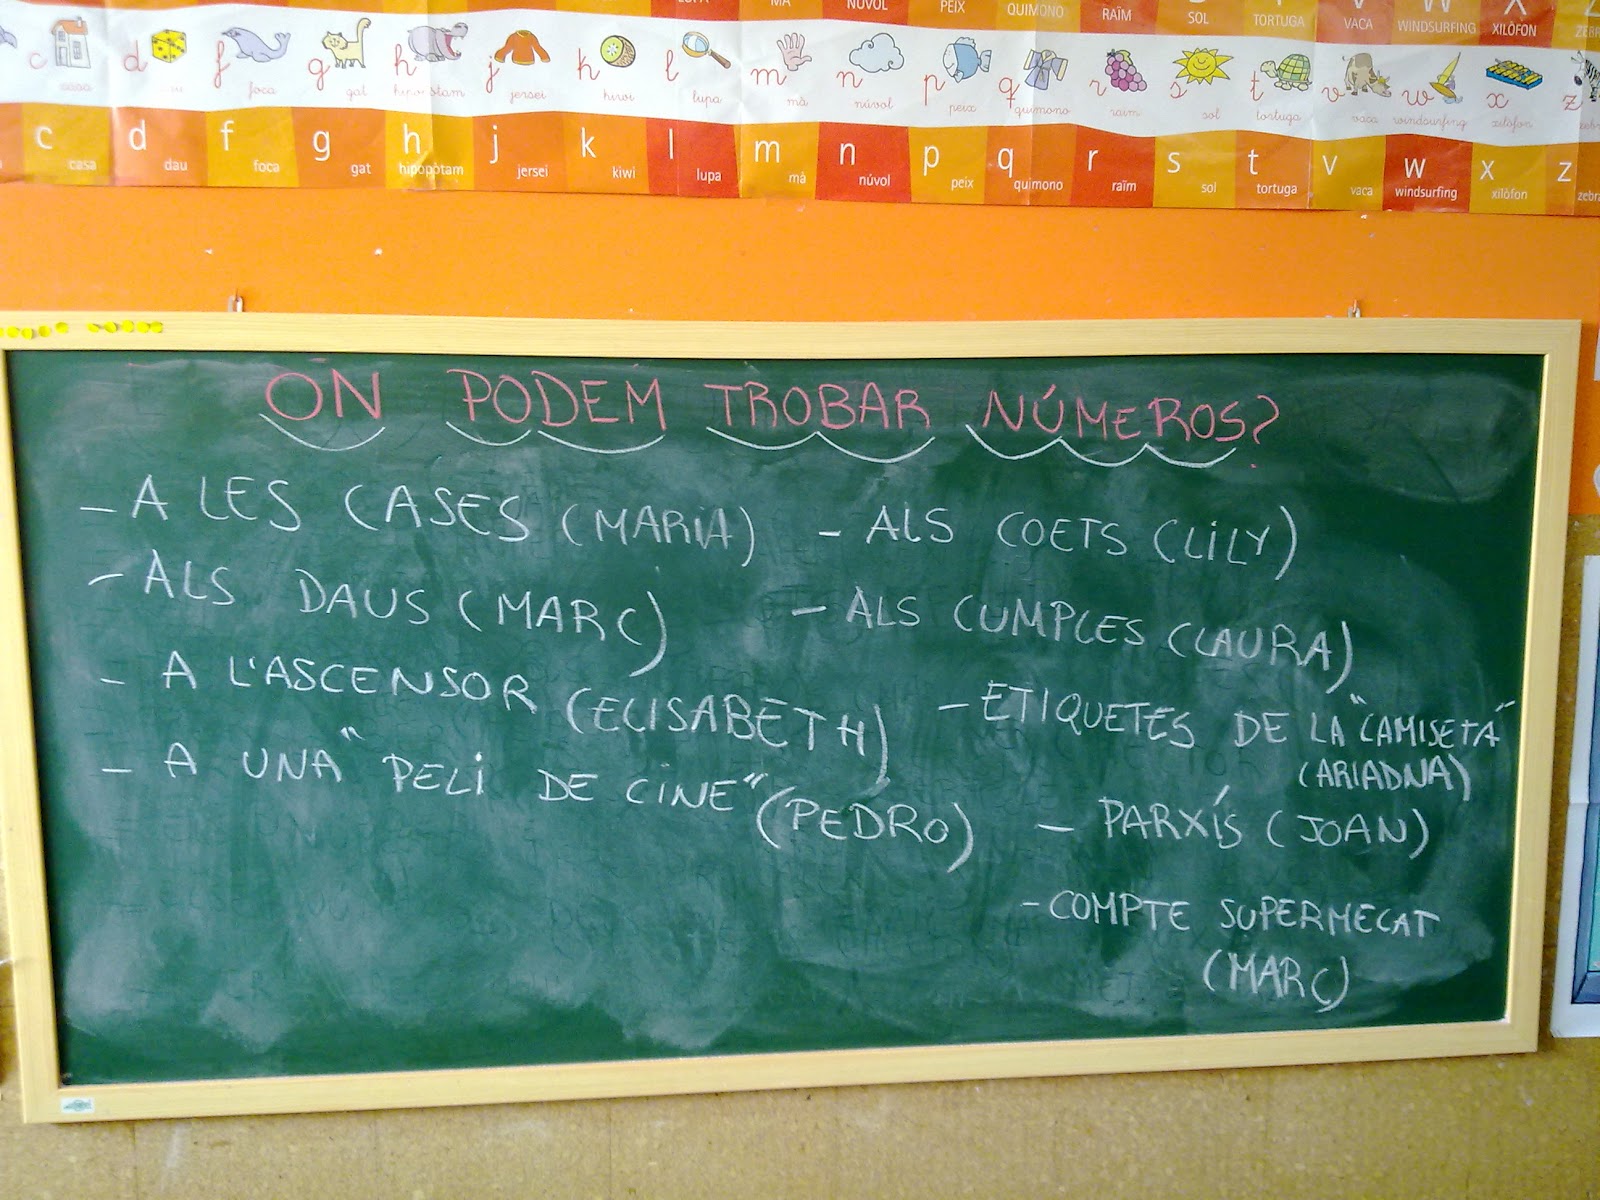 LUPA MÀ NÚVOL PEIX QUIMONO RAÏM SOL TORTUGA VACA WINDSURFING XILÒFON
c d f g h j k l m n p q r s t v w x z
casa dau foca gat hipopòtam jersei kiwi lupa mà núvol peix quimono raïm sol tortuga vaca windsurfing xilòfon
c d f g h j k l m n p q r s t v w x z
casa dau foca gat hipopòtam jersei kiwi lupa mà núvol peix quimono raïm sol tortuga vaca windsurfing xilòfon zebra
ON PODEM TROBAR NÚMEROS?
- A LES CASES (MARIA)
- ALS DAUS (MARC)
- A L'ASCENSOR (ELISABETH)
- A UNA "PELI DE CINE" (PEDRO)
- ALS COETS (LILY)
- ALS CUMPLES (LAURA)
- ETIQUETES DE LA "CAMISETA"
(ARIADNA)
- PARXÍS (JOAN)
- COMPTE SUPERMECAT
(MARC)